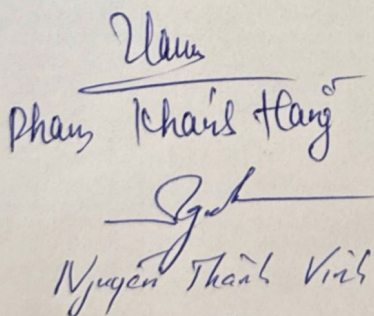 Phạm Khánh Hằng
Nguyễn Thành Vinh